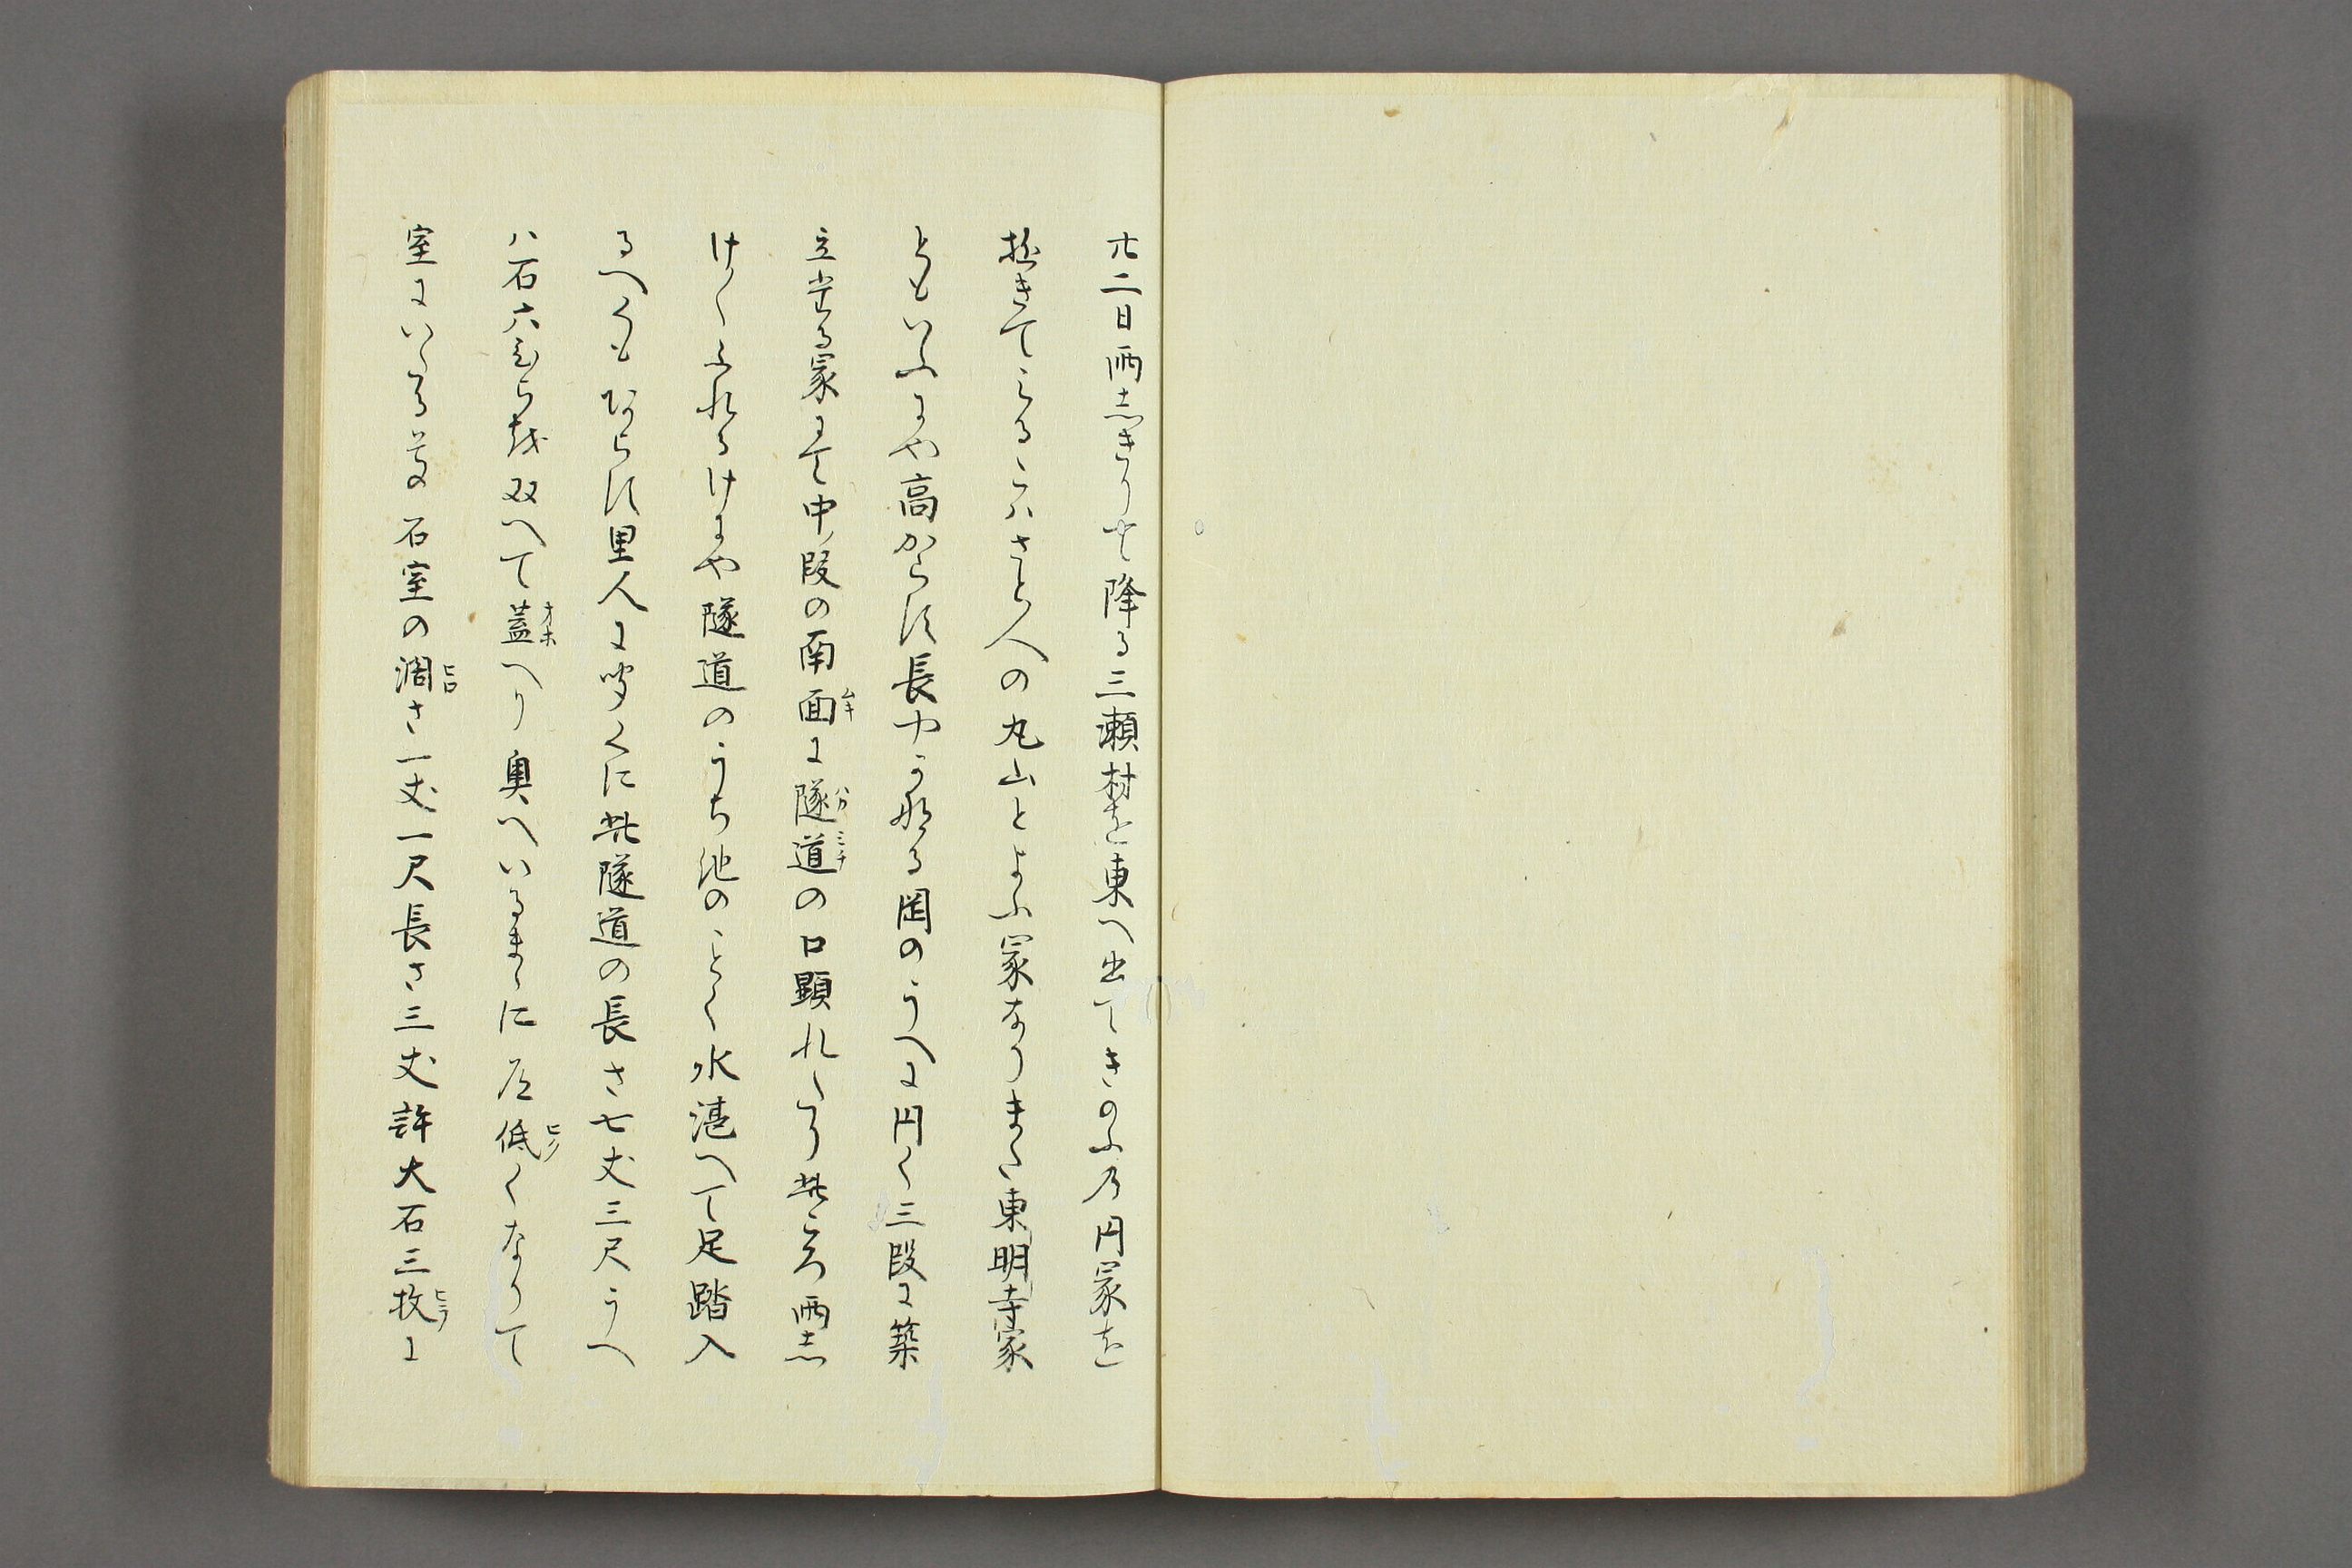 廿二日雨志きりて降る三瀬村を東へ出てきのふ乃円冢を
極きてみるこハさと人の丸山とよふ冢なりまた東明寺冢
ともいふにや高からす長やかなる岡のうへに円く三段に築
立たる冢にて中段の南面ムキに隧道ハカミチの口顕れたり此ころ雨志
けくふれるけにや隧道のうち池のことく水湛へて足踏入
るへくもあらす里人に聞くに此隧道の長さ七丈三尺うへ
ハ石六ひらを双へて蓋オホへり奥へいるまゝに低ヒクくなりて
室にいたる 石室の濶ヒロさ一丈一尺長さ三丈許大石三枚ヒラに